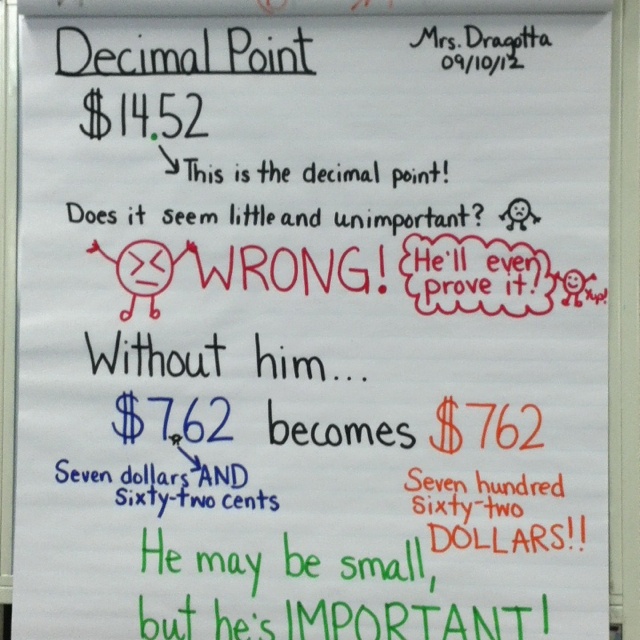 Decimal Point
Mrs. Dragotta
09/10/12
$14.52
This is the decimal point!
Does it seem little and unimportant?
WRONG!
He'll even
prove it!
Yup!
Without him...
$7.62 becomes $762
Seven dollars AND
Sixty-two cents
Seven hundred
Sixty-two
DOLLARS!!
He may be small,
but he's IMPORTANT!